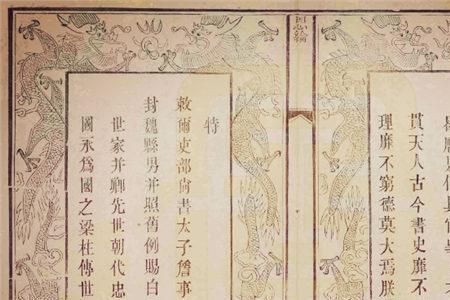 貫天人古今書史靡不
理靡不窮德莫大焉朕
特
敕爾吏部尚書太子詹事
封魏縣男并照舊例賜白
世家并卿先世朝代忠
國承爲國之梁柱傳世